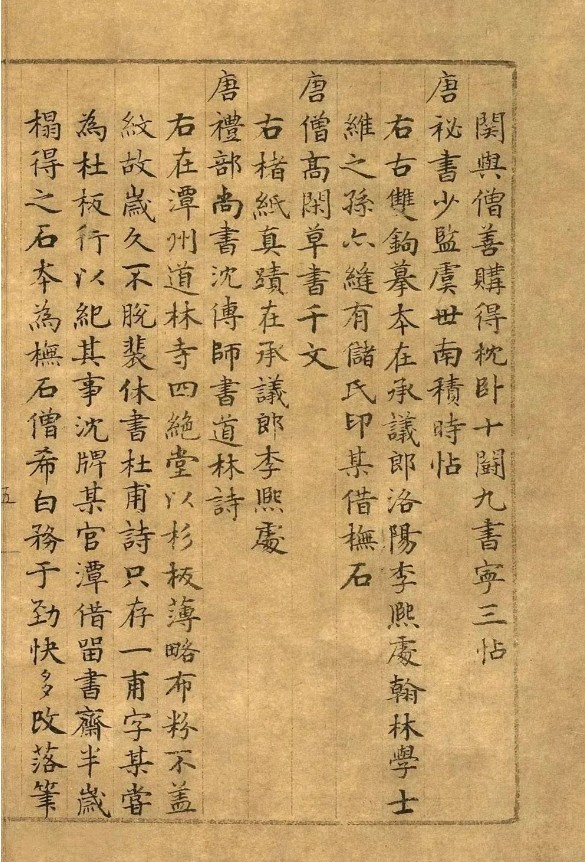 関與僧善購得枕卧十闢九書寜三帖
唐秘書少監虞世南積時帖
右古雙鉤摹本在承議郎洛陽李熈處翰林學士
維之孫六縫有儲氏印某借橅石
唐僧髙閑草書千文
右楮紙真蹟在承議郎李熈處
唐禮部尚書沈傳師書道林詩
右在潭州道林寺四絶堂以杉板薄略布粉不盖
紋故歳久不脫裴休書杜甫詩只存一甫字某嘗
為杜板行以紀其事沈牌某官潭借留書齋半歳
榻得之石本為橅石僧希白務于勁快多改落筆
五